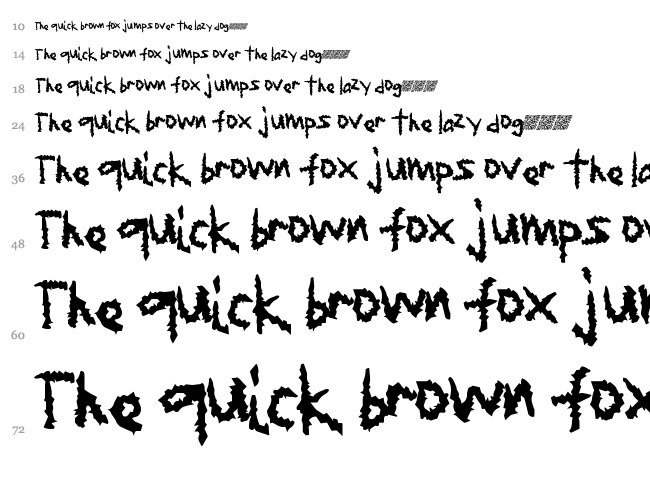 10 The quick brown fox jumps over the lazy dog
14 The quick brown fox jumps over the lazy dog
18 The quick brown fox jumps over the lazy dog
24 The quick brown fox jumps over the lazy dog
36 The quick brown fox jumps over the la
48 The quick brown fox jumps ov
60 The quick brown fox jum
72 The quick brown fox